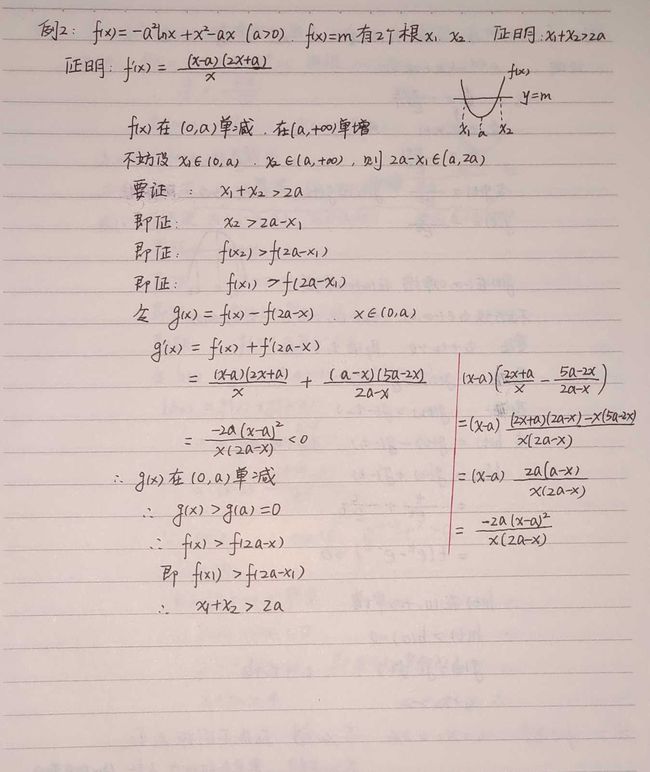 例2: f(x)=-a²lnx+x²-ax (a>0). f(x)=m 有2个根 x₁ x₂. 证明: x₁+x₂>2a
证明: f'(x) = (x-a)(2x+a)/x
f(x)
y=m
x₁ a x₂
f(x) 在 (0,a) 单减. 在(a,+∞)单增
不妨设 x₁∈(0,a). x₂∈(a,+∞), 则 2a-x₁∈(a,2a)
要证: x₁+x₂>2a
即证: x₂>2a-x₁
即证: f(x₂)>f(2a-x₁)
即证: f(x₁)>f(2a-x₁)
令 g(x)=f(x)-f(2a-x). x∈(0,a)
g'(x)=f'(x)+f'(2a-x)
= (x-a)(2x+a)/x + (a-x)(5a-2x)/(2a-x)
= -2a(x-a)²/x(2a-x) <0
∴ g(x)在(0,a)单减
∴ g(x)>g(a)=0
∴ f(x)>f(2a-x)
即 f(x₁)>f(2a-x₁)
∴ x₁+x₂>2a
(x-a)((2x+a)/x - (5a-2x)/(2a-x))
=(x-a) (2x+a)(2a-x)-x(5a-2x)/x(2a-x)
=(x-a) 2a(a-x)/x(2a-x)
= -2a(x-a)²/x(2a-x)